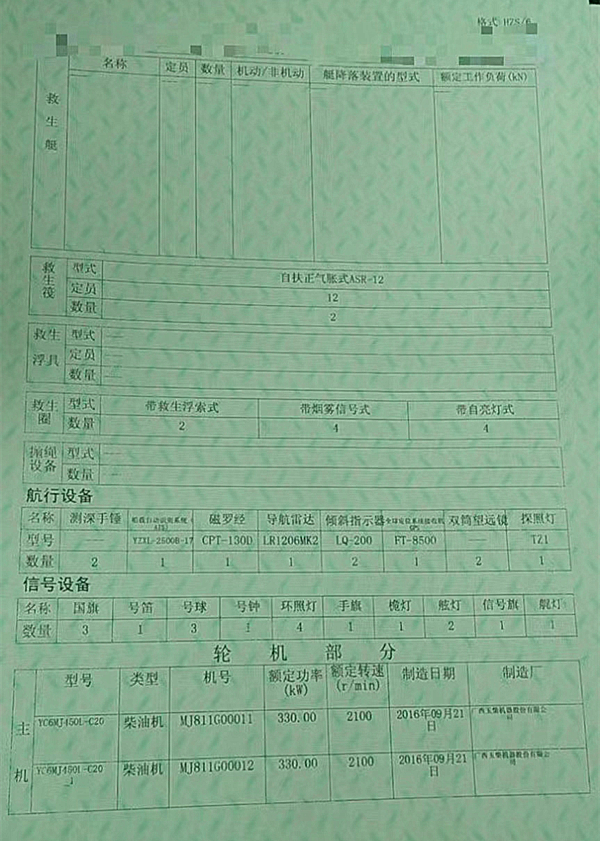 格式 HZS/6
名称 定员 数量 机动/非机动 艇降落装置的型式 额定工作负荷(kN)
救生艇
救生筏 型式 自扶正气胀式ASR-12
定员 12
数量 2
救生浮具 型式 ——
定员 ——
数量 ——
救生圈 型式 带救生浮索式 带烟雾信号式 带自亮灯式
数量 2 4 4
抛绳设备 型式 ——
数量 ——
航行设备
名称 测深手锤 船载自动识别系统(AIS) 磁罗经 导航雷达 倾斜指示器 全球定位系统接收机GPS 双筒望远镜 探照灯
型号 —— YZXL-2500B-17 CPT-130D LR1206MK2 LQ-200 FT-8500 —— TZ1
数量 2 1 1 1 2 1 2 1
信号设备
名称 国旗 号笛 号球 号钟 环照灯 手旗 桅灯 舷灯 信号旗 艉灯
数量 3 1 3 1 4 1 1 2 1 1
轮机部分
型号 类型 机号 额定功率(kW) 额定转速(r/min) 制造日期 制造厂
主机 YC6MJ450L-C20 柴油机 MJ811G00011 330.00 2100 2016年09月21日 广西玉柴机器股份有限公司
YC6MJ450L-C20_1 柴油机 MJ811G00012 330.00 2100 2016年09月21日 广西玉柴机器股份有限公司